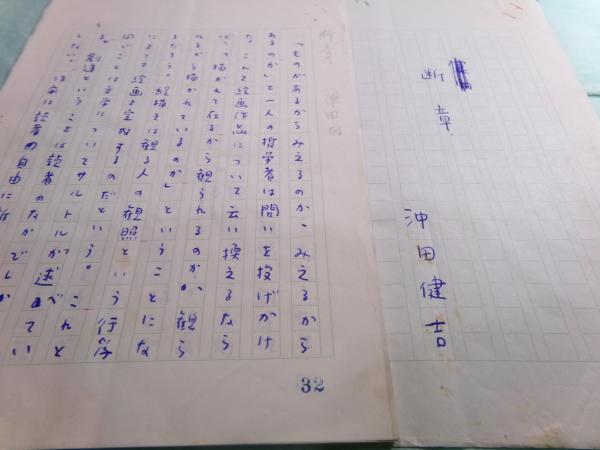 断章
沖田健吉
断章 沖田
「ものがあるからみえるのか、みえるから
あるのか」と一人の哲学者は問いを投げかけ
た。これを絵画作品について云い換えるなら
ば「描かれて在るから観られるのか、観ら
れるから描かれているのか」ということにな
るだろう。絵描きは観る人の観照という行為
によって絵画を完成するのだという。これと
同じことは文学についてサルトルが述べてい
る。「創造ということは読者のなかでしか
しない。作家は読者の自由に
32